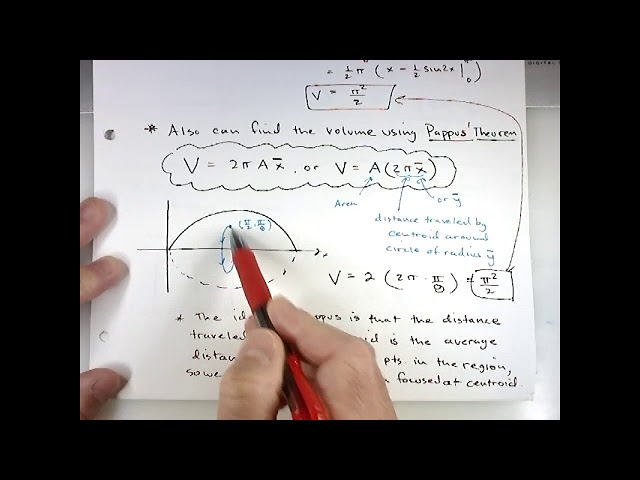 = 1/2 π (x - 1/2 sin2x |₀
V = π²/2
* Also can find the volume using Pappus' Theorem
V = 2π A x̄, or V = A (2π x̄)
Area
or ȳ
(π/2, π/8)
distance traveled by
centroid around
circle of radius ȳ
x
V = 2 (2π · π/8) = π²/2
* The is that the distance
traveled is the average
pts in the region,
so we focused at centroid.